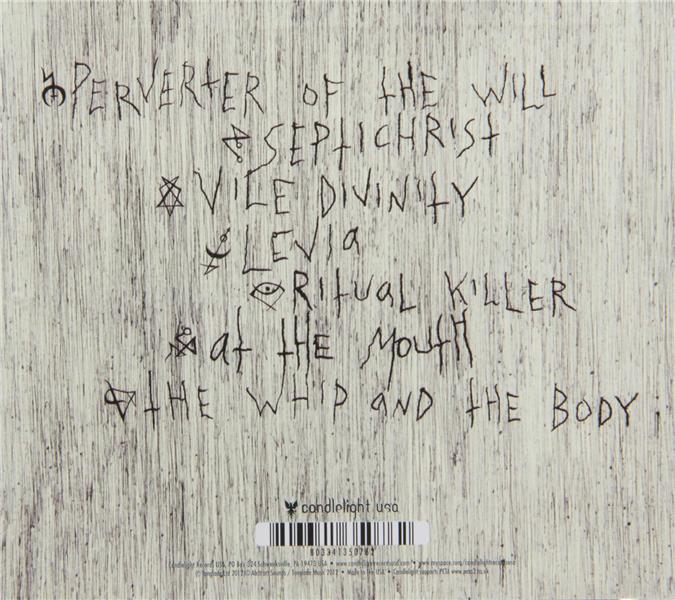 PERVERTER OF THE WILL
SEPTICHRIST
VILE DIVINITY
LEVIA
RITUAL KILLER
at THE MOUTH
THE WHIP AND THE BODY
candlelight usa
803341350762
Candlelight Records USA, PO Box 324 Schwenksville, PA 19473 USA • www.candlelightrecordsusa.com • www.myspace.com/candlelightrecordsusa
2012 Abstract Sounds / Template Music 2012 • Made In The USA • Candlelight supports PETA www.peta2.co.uk